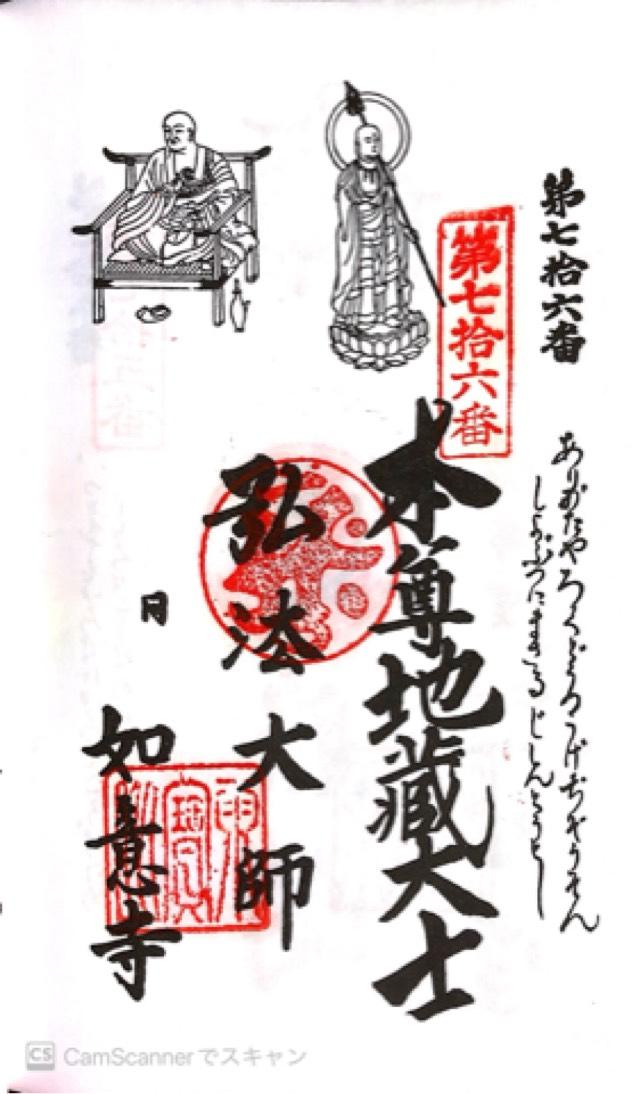 第七拾六番
ありがたや ろくどうのうげ ぢぞうそん
しょぶつにまさる じしんとうとし
第七拾六番
本尊地蔵大士
弘法大師
日
如意寺
CS CamScannerでスキャン